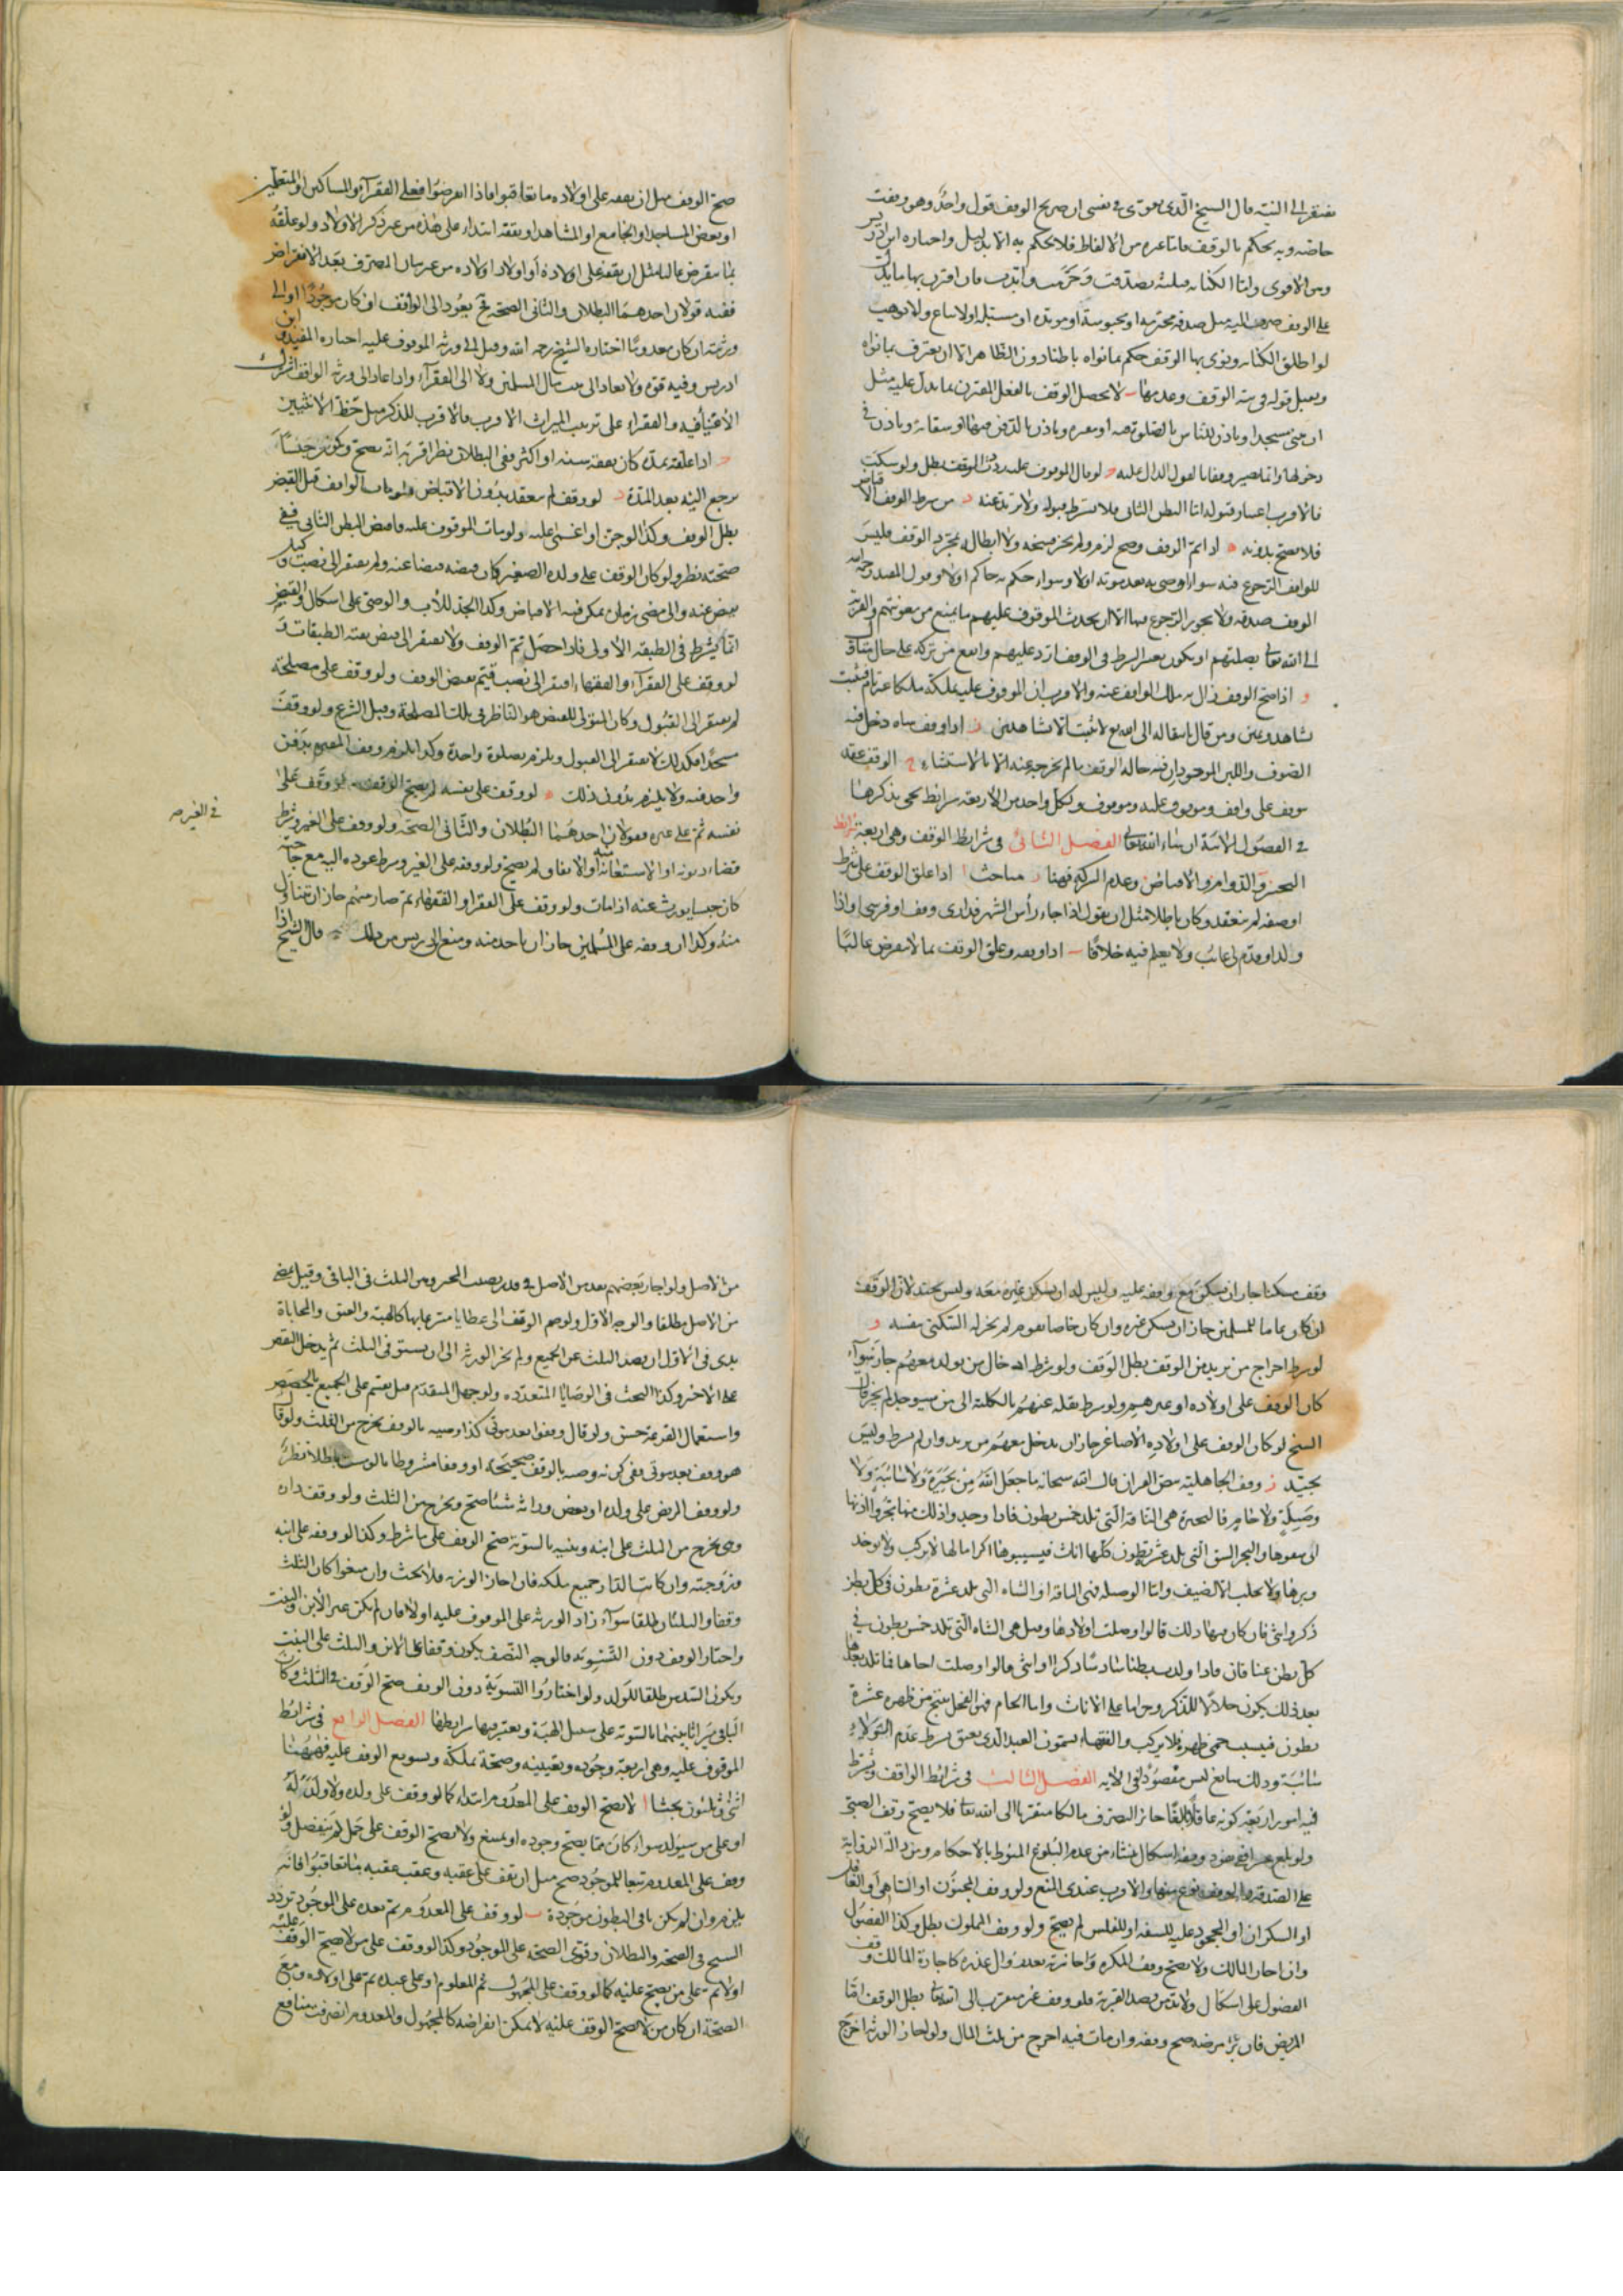 يفتقر الى النية قال الشيخ الذى يقوى فى نفسى ان صريح الوقف قول واحد وهو وقفت
خاصة وبه يحكم بالوقف فاما غيره من الالفاظ فلا يحكم به الا بدليل واختاره ابن ادريس
وهو الاقوى واما الكناية فثلثة تصدقت وحرمت وابدت فان اقترن بها ما يدل
على الوقف صرفت اليه مثل صدقة محرمة او محبوسة او موبدة او مسبلة او لا تباع ولا توهب
لو اطلق الكناية ونوى بها الوقف حكم بما نواه باطنا دون الظاهر الا ان يعترف بما نواه
ويقبل قوله فى نية الوقف وعدمها ب لا يحصل الوقف بالفعل المقترن بما يدل عليه مثل
ان يبنى مسجدا وياذن للناس بالصلوة فيه او مقبرة وياذن بالدفن فيها او سقاية وياذن فى
دخولها وانما يصير وقفا بالقول الدال عليه ج لو قال الموقوف عليه رددت الوقف بطل ولو سكت
فالاقرب اعتبار قبوله اما البطن الثانى فلا يشترط قبوله ولا يرتد عنه د من شرط الوقف الاقباض
فلا يصح بدونه ه اذا تم الوقف وصح لزم ولم يجز فسخه ولا ابطاله بمجرد الوقف فليس
للواقف الرجوع فيه سواء اوصى به بعد موته او لا وسواء حكم به حاكم او لا وقول المفيد رحمه الله
الوقف صدقة ولا يجوز الرجوع فيها الا ان يحدث الموقوف عليهم ما يمنع من معونتهم والقربة
الى الله تعالى بصلتهم او يكون تغيير الشرط فى الوقف ارد عليهم وانفع من تركه على حال متأول
و اذا صح الوقف زال به ملك الواقف عنه والاقرب ان الموقوف عليه يملكه ملكا غير تام فيثبت
بشاهد ويمين ومن قال بانتقاله الى الله تعالى لا يثبت الا بشاهدين ز اذا وقف شاة دخل فيه
الصوف واللبن الموجودان فيه حالة الوقف ما لم يخرجه عنه الا بالاستثناء ح الوقف عقد
يتوقف على واقف وموقوف عليه وموقوف ولكل واحد من الاربعة شرائط يجى ذكرها
فى الفصول الاتية ان شاء الله تعالى الفصل الثانى فى شرائط الوقف وهى اربعة شرائط
التنجيز والدوام والاقباض وعدم الشركة فهنا ى مباحث ا اذا علق الوقف على شرط
او صفة لم ينعقد وكان باطلا مثل ان يقول اذا جاء رأس الشهر فدارى وقف او فرسى او اذا
ولد او قدم لى غائب ولا يعلم فيه خلافا ب اذا وقف وعلق الوقف بما لا ينقرض غالبا
صح الوقف مثل ان يقفه على اولاده ما تعاقبوا فاذا انقرضوا فعلى الفقراء والمساكين او المتعلمين
او بعض المساجد او الجامع او المشاهد او يقفه ابتداء على هذه من غير ذكر الاولاد ولو علقه
بما ينقرض غالبا مثل ان يقفه على اولاده او اولاد اولاده من غير بيان المصرف بعد الانقراض
ففيه قولان احدهما البطلان والثانى الصحة فح يعود الى الواقف ان كان موجودا او الى
ورثته ان كان معدوما اختاره الشيخ رحمه الله وقيل الى ورثة الموقوف عليه اختاره المفيد وابن
ادريس وفيه قوة ولا يعاد الى بيت مال المسلمين ولا الى الفقراء واذا عاد الى ورثة الواقف اشترك
الاغنياء فيه والفقراء على ترتيب الميراث الاقرب فالاقرب للذكر مثل حظ الانثيين
ج اذا علقه بمدة كأن يقفه سنة او اكثر ففى البطلان نظر اقربه انه يصح ويكون حبسا
يرجع اليه بعد المدة د لو وقف لم ينعقد بدون الاقباض ولو مات الواقف قبل القبض
بطل الوقف وكذا لو جن او اغمى عليه ولو مات الموقوف عليه وقبض البطن الثانى ففى
صحته نظر ولو كان الوقف على ولده الصغير كان قبضه قبضا عنه ولم يفتقر الى نصب وكيل
يقبض عنه والى مضى زمان يمكن فيه الاقباض وكذا الجد للاب والوصى على اشكال والقبض
انما يشترط فى الطبقة الاولى فاذا حصل تم الوقف ولا يفتقر الى قبض بقية الطبقات و
لو وقف على الفقراء والفقهاء افتقر الى نصب قيم يقبض الوقف ولو وقف على مصلحة
لم يفتقر الى القبول وكان المتولى للقبض هو الناظر فى تلك المصلحة وقيل الشرع ولو وقف
مسجدا فكذلك لا يفتقر الى القبول ويلزم بصلوة واحدة وكذا يلزم وقف المقبرة بدفن
واحد فيه ولا يلزم بدون ذلك ه لو وقف على نفسه لم يصح الوقف ولو وقف على
نفسه ثم على غيره فقولان احدهما البطلان والثانى الصحة ولو وقف على الغير وشرط
فى الغير صح
قضاء ديونه او الاستعانة او الانفاق لم يصح ولو وقفه على الغير وشرط عوده اليه مع حاجته
كان حبسا يورث عنه اذا مات ولو وقف على الفقراء او الفقهاء ثم صار منهم جاز ان يتناول
منه وكذا ان وقفه على المسلمين جاز ان ياخذ منه ومنع ابن ادريس من ذلك قال الشيخ اذا
وقف مسكنا جاز ان يسكن مع من وقفه عليه وليس له ان يسكن غيره معه وليس بجيد لان الوقف
ان كان عاما للمسلمين جاز ان يسكن غيره وان كان خاصا بقوم لم يجز له السكنى بنفسه و
لو شرط اخراج من يريد من الوقف بطل الوقف ولو شرط ادخال من يولد معهم جاز سواء
كان الوقف على اولاده او غيرهم ولو شرط نقله عنهم بالكلية الى من سيوجد لم يجز قال
الشيخ لو كان الوقف على اولاده الاصاغر جاز ان يدخل معهم من يريد وان لم يشرط وليس
بجيد ز وقف الجاهلية بنص القران قال الله سبحانه ما جعل الله من بحيرة ولا سائبة ولا
وصيلة ولا حام فالبحيرة هى الناقة التى تلد خمس بطون
ذكر وانثى فان كان
كل بطن عناقان فاذا ولدت بطنا سادسا ذكرا او انثى قالوا وصلت اخاها فما تلد بعدها
بعد ذلك يكون حلالا للذكر وحراما على الاناث واما الحام فهو الفحل ينتج من ظهره عشرة
بطون فيسيب حمى ظهره فلا يركب والفقهاء يسمون العبد الذى يعتق بشرط عدم الولاء
سائبة وذلك سائغ ليس مقصودا فى الاية الفصل الثالث فى شرائط الواقف ويشترط
فيه امور اربعة كونه عاقلا بالغا جائز التصرف مالكا متقربا الى الله تعالى فلا يصح وقف الصبى
ولو بلغ عشرا ففى جواز وقفه اشكال منشاء من عدم البلوغ المنوط بالاحكام ومن دلالة الرواية
على الصدقة والوقف نوع منها والاقرب عندى المنع ولو وقف المجنون او الساهى او الغافل
او السكران او المحجور عليه للسفه او للفلس لم يصح ولو وقف المملوك بطل وكذا الفضول
وان اجاز المالك ولا يصح وقف المكره واجازته بعد زوال عذره كاجازة المالك وقف
الفضول على اشكال ولا بد من قصد القربة فلو وقف غير متقرب الى الله تعالى بطل الوقف اما
المريض فان برأ من مرضه صح وقفه وان مات فيه اخرج من ثلث المال ولو اجاز الورثة اخرج
من الاصل ولو اجاز بعضهم نفذ من الاصل فى قدر نصيب المجيز ومن الثلث فى الباقى وقيل يمضى
من الاصل مطلقا والوجه الاول ولو ضم الوقف الى عطايا متبرع بها كالهبة والعتق والمحاباة
بدى فى الاول ان قصر الثلث عن الجميع ولم يجز الورثة الى ان يستوفى الثلث ثم يدخل النقص
على الاخر وكذا البحث فى الوصايا المتعددة ولو جهل المتقدم قيل يقسم على الجميع بالحصص
واستعمال القرعة حسن ولو قال وقفوا بعد موتى كذا وصية بالوقف يخرج من الثلث ولو قال
هو وقف بعد موتى ففى كونه وصية بالوقف صحيحة او وقفا مشروطا بالموت باطلا نظر
ولو وقف المريض على ولده او بعض وراثه شيئا صح ويخرج من الثلث ولو وقف داره
وهى تخرج من الثلث على ابنه وبنته بالسوية صح الوقف على ما شرط وكذا لو وقفه على ابنه
وزوجته وان كانت الدار جميع ملكه فان اجاز الورثة فلا بحث وان منعوا كان الثلث
وقفا والثلثان طلقا سواء زاد الورثة على الموقوف عليه او لا فان لم يكن غير الابن والبنت
واختار الوقف دون التسوية فالوجه النصف يكون وقفا على الابن والثلث على البنت
ويكون السدس طلقا للولد ولو اختاروا التسوية دون الوقف صح الوقف فى الثلث وكان
الباقى ميراثا بينهما بالسوية على سبيل الهبة ويعتبر فيها شرايطها الفصل الرابع فى شرائط
الموقوف عليه وهى اربعة وجوده وتعيينه وصحة تملكه وتسويغ الوقف عليه فههنا
اثنى وثلثون بحثا ا لا يصح الوقف على المعدوم ابتداء كما لو وقف على ولده ولا ولد له
او على من سيولد سواء كان مما يصح وجوده او يمتنع ولا يصح الوقف على حمل لم ينفصل ولو
وقف على المعدوم تبعا للموجود صح مثل ان يقف على عقبه وعقب عقبه ما تعاقبوا فانه
يلزم وان لم يكن باقى البطون موجودة ب لو وقف على المعدوم ثم بعده على الموجود تردد
الشيخ فى الصحة والبطلان وقوى الصحة على الموجود وكذا لو وقف على من لا يصح الوقف عليه
اولا ثم على من يصح عليه كما لو وقف على المجهول ثم المعلوم او على عبده ثم على اولاده ومع
الصحة ان كان من لا يصح الوقف عليه لا يمكن انقراضه كالمجهول والمعدوم انصرفت منافع